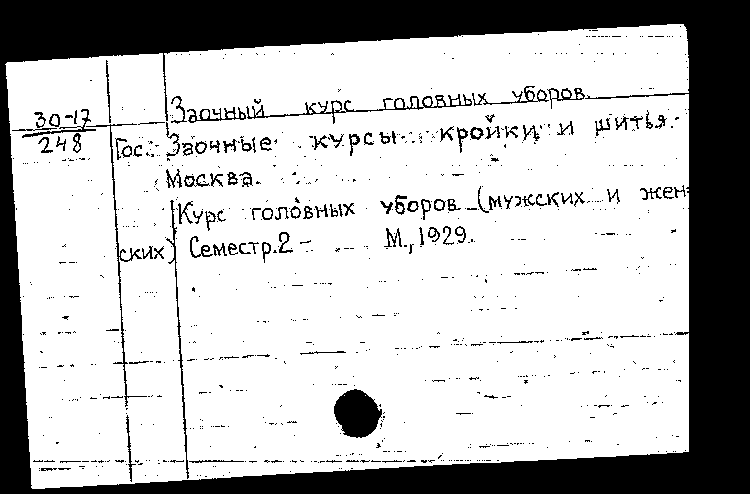 Заочный курс головных уборов.
30-17
248
Гос. Заочные курсы кройки и шитья.
Москва.
Курс головных уборов (мужских и жен-
ских) Семестр.2 - М., 1929.